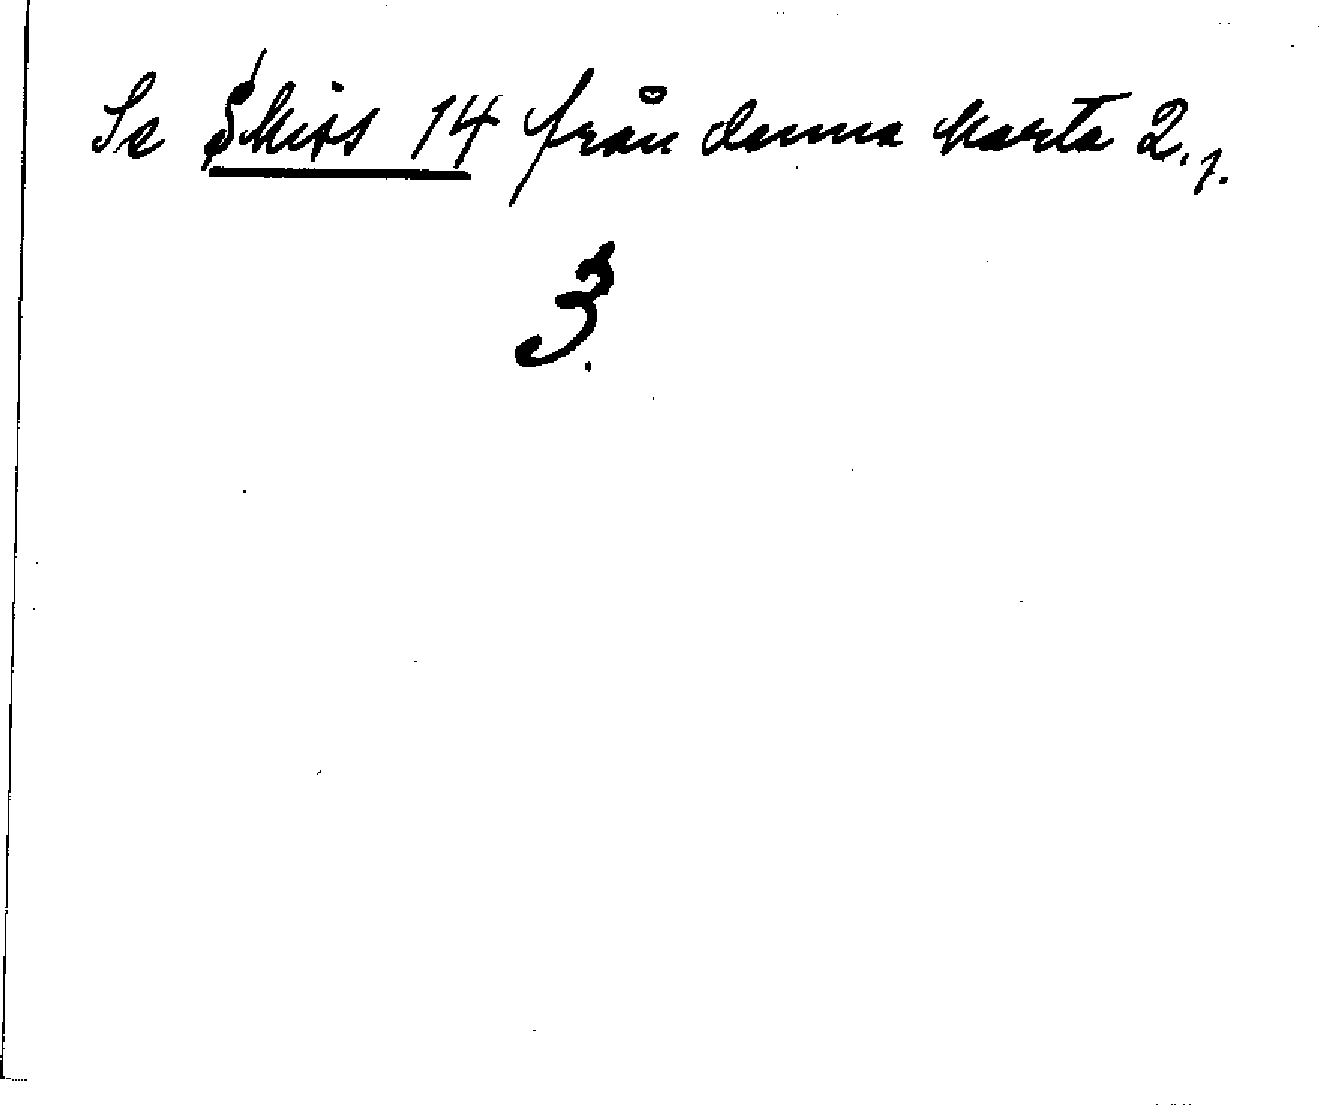 Se Skiss 14 från denna karta 2.
3.